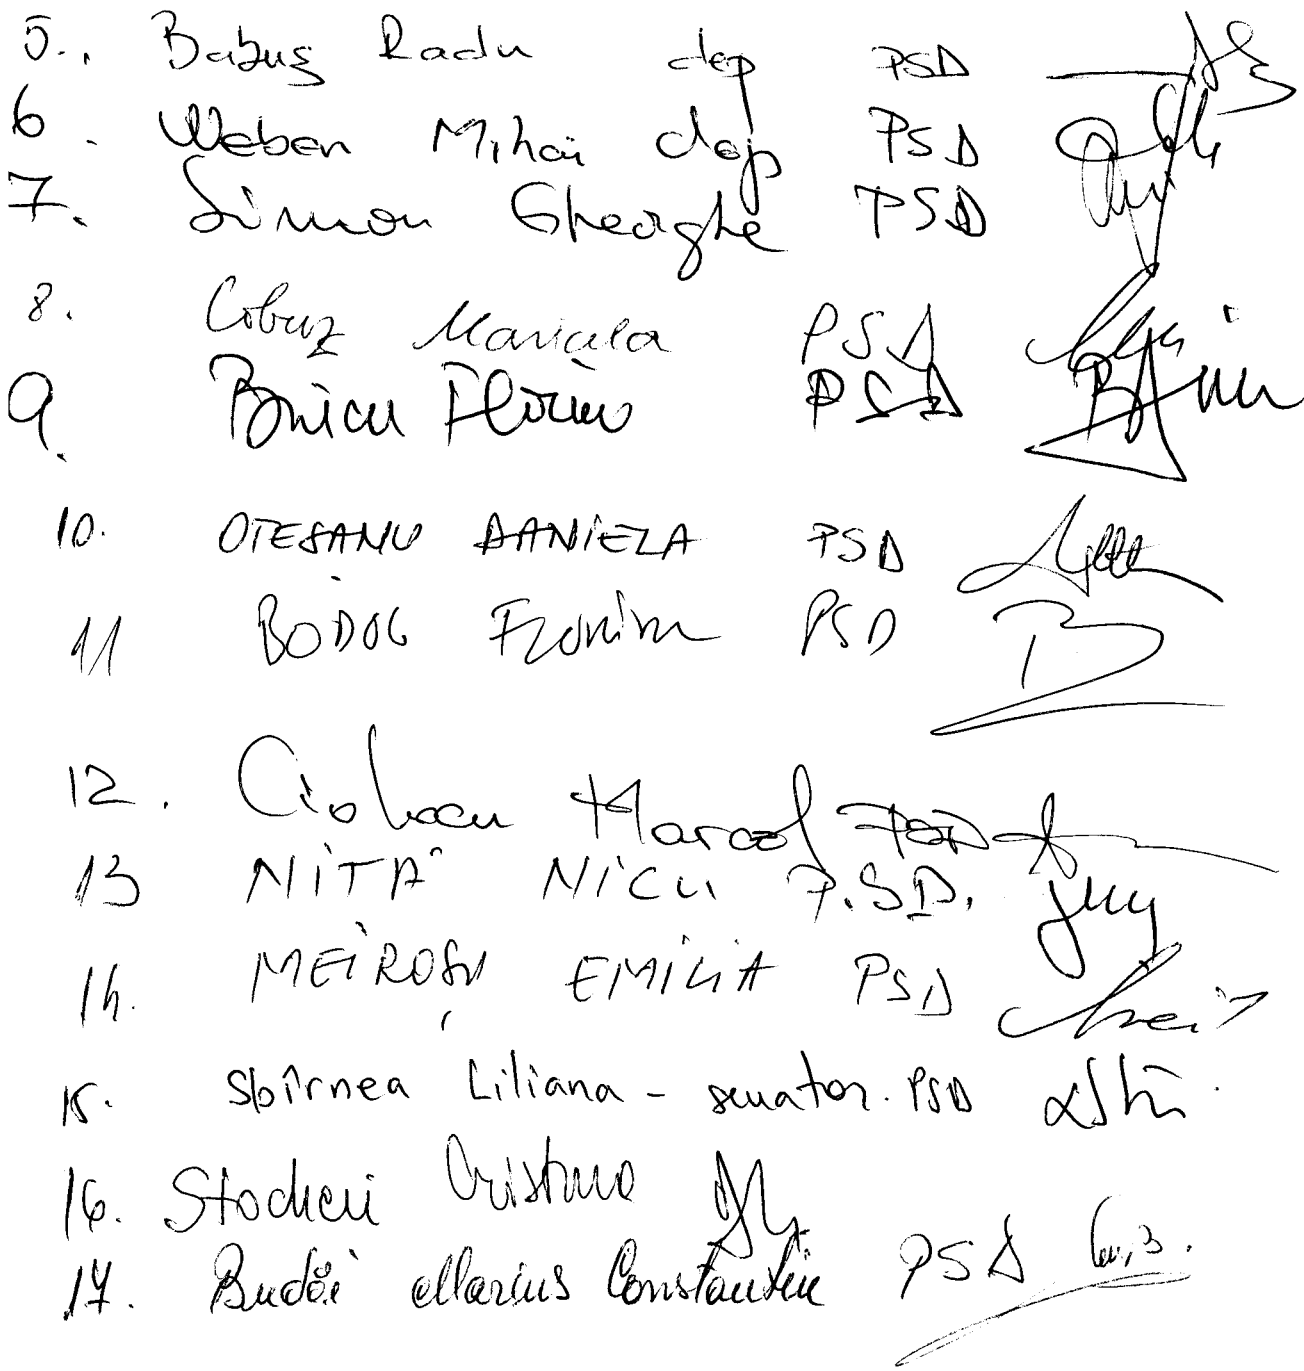 5. Babuș Radu dep PSD
6. Weber Mihai dep PSD
7. Simon Gheorghe PSD
8. Cobuz Maricela PSD
9. Florin PSD
10. OTEȘANU DANIELA PSD
11 BODOG Florian PSD
12. Ciolacu Marcel PSD
13 NIȚĂ NICU P.S.D.
14. MEIROȘU EMILIA PSD
15. Sbîrnea Liliana - senator. PSD
16. Stocheci Cristina
17. Budăi Marius Constantin PSD